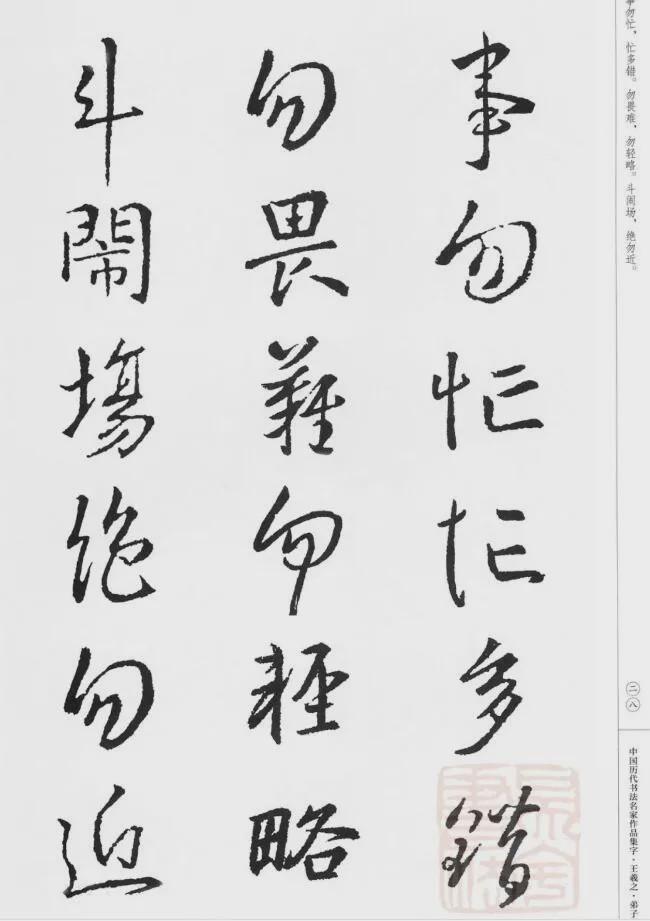 事勿忙，忙多错。勿畏难，勿轻略。斗闹场，绝勿近。
二八
中国历代书法名家作品集字·王羲之·弟子
事勿忙忙多錯
勿畏難勿輕略
斗鬧場絕勿近